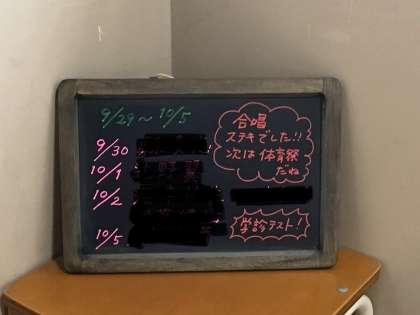 9/29〜10/5
合唱
ステキでした!!
次は体育祭
だね
9/30
10/1
10/2
10/5
学診テスト!